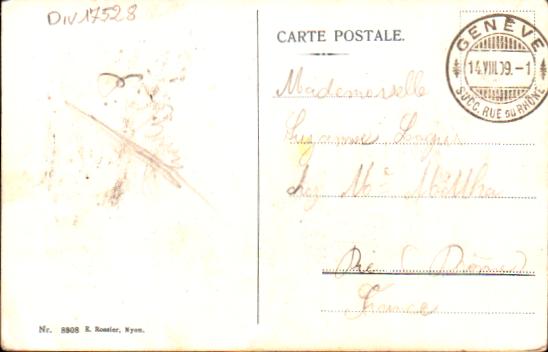 Div17528
CARTE POSTALE.
GENÈVE
14.VIII.09.-1
SUCC. RUE DU RHÔNE
Mademoiselle
Suzanne
chez Mr
Die (Drôme)
France
Nr. 8808 E. Rossier, Nyon.